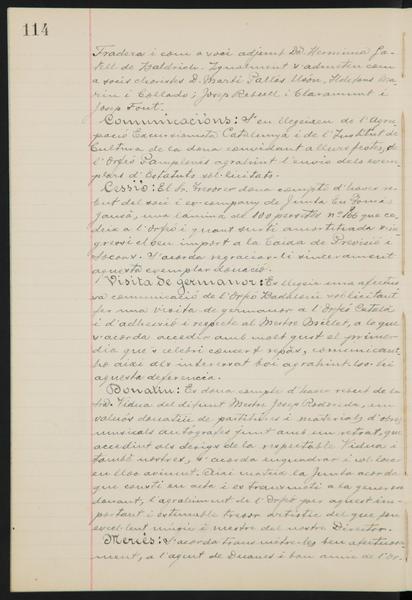 114
Tradera i com a soci adjunt Da. Herminia Ga-
tell de Haldrich. Igualment s'admeten com
a socis choristes D. Martí Pallàs Usón, Ildefons Ma-
rin i Collado; Josep Rebell i Claramunt i
Josep Font.
Comunicacións: S'en llegeixen de l'Agru-
pació Excursionista Catalunya i de l'Institut de
Cultura de la dona convidant a llurs festes, de
l'Orfeó Pamplonès agrahint l'envio dels exem-
plars d'Estatuts sol·licitats.
Cessió: El Sr. Tresorer dona compte d'haver re-
but del soci i ex-company de Junta En Tomás
una lámina de 100 pessetes nº 166 que ce-
deix a l'Orfeó i quant sur-ti amortitzada s'in-
gressi el seu import a la Caixa de Previsió i
Socors. S'acorda regraciar-li sincerament
aquesta exemplar donació.
Visita de germanor: Es llegeix una afectuo-
sa comunicació de l'Orfeó sol·licitant
fer una visita de germanor a l'Orfeó Català
i d'adhessió i respecte al Mestre Millet, a lo que
s'acorda accedir amb molt gust el primer
dia que's celebri concert repás, comunicant-
ho aixi als interessats boi agrahint-los-hi
aquesta deferencia.
Donatiu: Es dona compte d'haver rebut de la
Sra. Vidua del difunt Mestre Josep Rodoreda, un
valuós donatiu de partitures i materials d'obres
musicals autografes junt amb un retrat, que
accedint als desigs de la respectable Vidua i
també nostres, s'acorda enquadrar i col·locar
en lloc avinent. Aixi mateix la Junta acorda
que consti en acta i es transmeti a la generosa
donant, l'agrahiment de l'Orfeó per aquest im-
portant i estimable tresor artistic del que fou
excel·lent music i mestre del nostre Director.
Mercés: S'acorda trans metre-les ben afectuosa-
ment, a l'agent de Duanes i bon amic de l'Or-